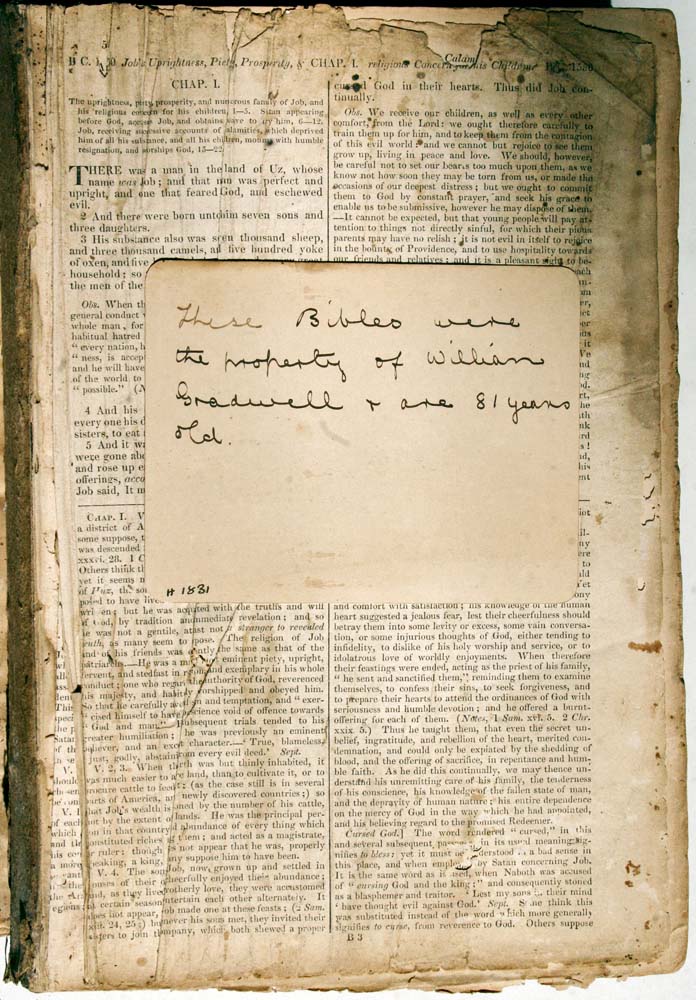 B C. Job's Uprightness, Piety, Prosperity, & CHAP. I. religious Concern for his Children. 
Calam
CHAP. I.
The uprightness, piety, prosperity, and numerous family of Job, and
his religious concern for his children, 1—5. Satan appearing
before God, accuses Job, and obtains leave to try him, 6—12.
Job, receiving successive accounts of calamities, which deprived
him of all his substance, and all his children, mourns with humble
resignation, and worships God, 15—22.
THERE was a man in the land of Uz, whose
name was Job; and that man was perfect and
upright, and one that feared God, and eschewed
evil.
2 And there were born unto him seven sons and
three daughters.
3 His substance also was seven thousand sheep,
and three thousand camels, and five hundred yoke
of oxen, and five
household; so
the men of the
Obs. When th
general conduct
whole man, for
habitual hatred
" every nation, h
" ness, is accep
and he will have
of the world to
" possible." (N
4 And his
every one his d
sisters, to eat
5 And it wa
were gone abo
and rose up e
offerings, acco
Job said, It m
CHAP. I. V
a district of A
some suppose, t
was descended
xxxvi. 28. 1 C
Others think th
yet it seems n
of Huz, the so
posed to have live
but he was acquainted with the truths and will
of God, by tradition and immediate revelation; and so
he was not a gentile, at least not a stranger to revealed
truth, as many seem to suppose. The religion of Job
and of his friends was evidently the same as that of the
patriarchs.—He was a man of eminent piety, upright,
fervent, and stedfast in religion and exemplary in his whole
conduct; one who regarded the authority of God, reverenced
his majesty, and habitually worshipped and obeyed him.
So that he carefully avoided sin and temptation, and " exer-
" cised himself to have a conscience void of offence towards
" God and man." Subsequent trials tended to his
greater humiliation; he was previously an eminent
believer, and an excellent character.—' True, blameless,
just, godly, abstaining from every evil deed.' Sept.
V. 2, 3. When the earth was but thinly inhabited, it
was much easier to acquire land, than to cultivate it, or to
procure cattle to feed it; (as the case still is in several
parts of America, and newly discovered countries;) so
that Job's wealth is estimated by the number of his cattle,
not by the extent of his lands. He was the principal per-
son in that country, and abundance of every thing which
constituted riches; and acted as a magistrate,
ruler: though it does not appear that he was, properly
speaking, a king, as many suppose him to have been.
V. 4. The sons of Job, now grown up and settled in
homes of their own, cheerfully enjoyed their abundance;
and, as they lived in brotherly love, they were accustomed
at certain seasons to entertain each other alternately. It
does not appear, that Job made one at these feasts; (2 Sam.
xiii. 24, 25;) but whenever his sons met, they invited their
sisters to join the company, which both shewed a proper
These Bibles were
the property of William
Gradwell & are 81 years
old.
# 1881
cursed God in their hearts. Thus did Job con-
tinually.
Obs. We receive our children, as well as every other
comfort, from the Lord: we ought therefore carefully to
train them up for him, and to keep them from the contagion
of this evil world: and we cannot but rejoice to see them
grow up, living in peace and love. We should, however,
be careful not to set our hearts too much upon them, as we
know not how soon they may be torn from us, or made the
occasions of our deepest distress; but we ought to commit
them to God by constant prayer, and seek his grace to
enable us to be submissive, however he may dispose of them.
—It cannot be expected, but that young people will pay at-
tention to things not directly sinful, for which their pious
parents may have no relish: it is not evil in itself to rejoice
in the bounty of Providence, and to use hospitality towards
our friends and relatives; and it is a pleasant sight to be-
and comfort with satisfaction; his knowledge of the human
heart suggested a jealous fear, lest their cheerfulness should
betray them into some levity or excess, some vain conversa-
tion, or some injurious thoughts of God, either tending to
infidelity, to dislike of his holy worship and service, or to
idolatrous love of worldly enjoyments. When therefore
their feastings were ended, acting as the priest of his family,
" he sent and sanctified them," reminding them to examine
themselves, to confess their sins, to seek forgiveness, and
to prepare their hearts to attend the ordinances of God with
seriousness and humble devotion; and he offered a burnt-
offering for each of them. (Notes, 1 Sam. xvi. 5. 2 Chr.
xxix 5.) Thus he taught them, that even the secret un-
belief, ingratitude, and rebellion of the heart, merited con-
demnation, and could only be expiated by the shedding of
blood, and the offering of sacrifice, in repentance and hum-
ble faith. As he did this continually, we may thence un-
derstand his unremitting care of his family, the tenderness
of his conscience, his knowledge of the fallen state of man,
and the depravity of human nature; his entire dependence
on the mercy of God in the way which he had appointed,
and his believing regard to the promised Redeemer.
Cursed God.] The word rendered " cursed," in this
and several subsequent passages, in its usual meaning, sig-
nifies to bless; yet it must be understood in a bad sense in
this place, and when employed by Satan concerning Job.
It is the same word as is used, when Naboth was accused
of " cursing God and the king;" and consequently stoned
as a blasphemer and traitor. ' Lest my sons in their mind
' have thought evil against God.' Sept. Some think this
was substituted instead of the word which more generally
signifies to curse, from reverence to God. Others suppose
B 3